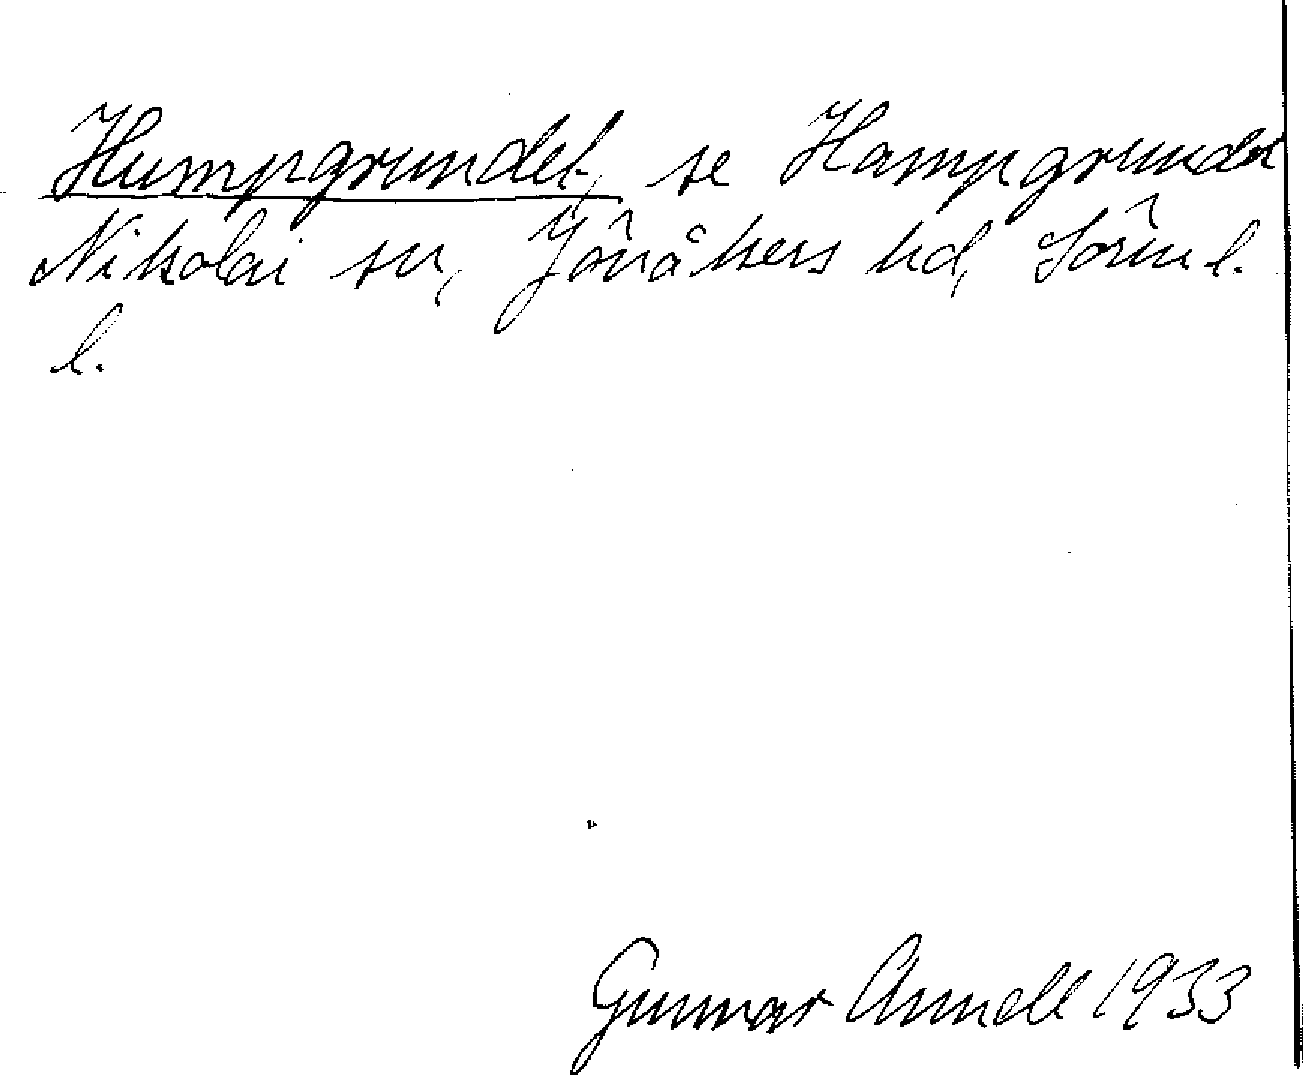 Humpgrundet, se Hampgrundet
Nikolai sn, Jönåkers hd, Sörml.
l.
Gunnar Arnell 1933